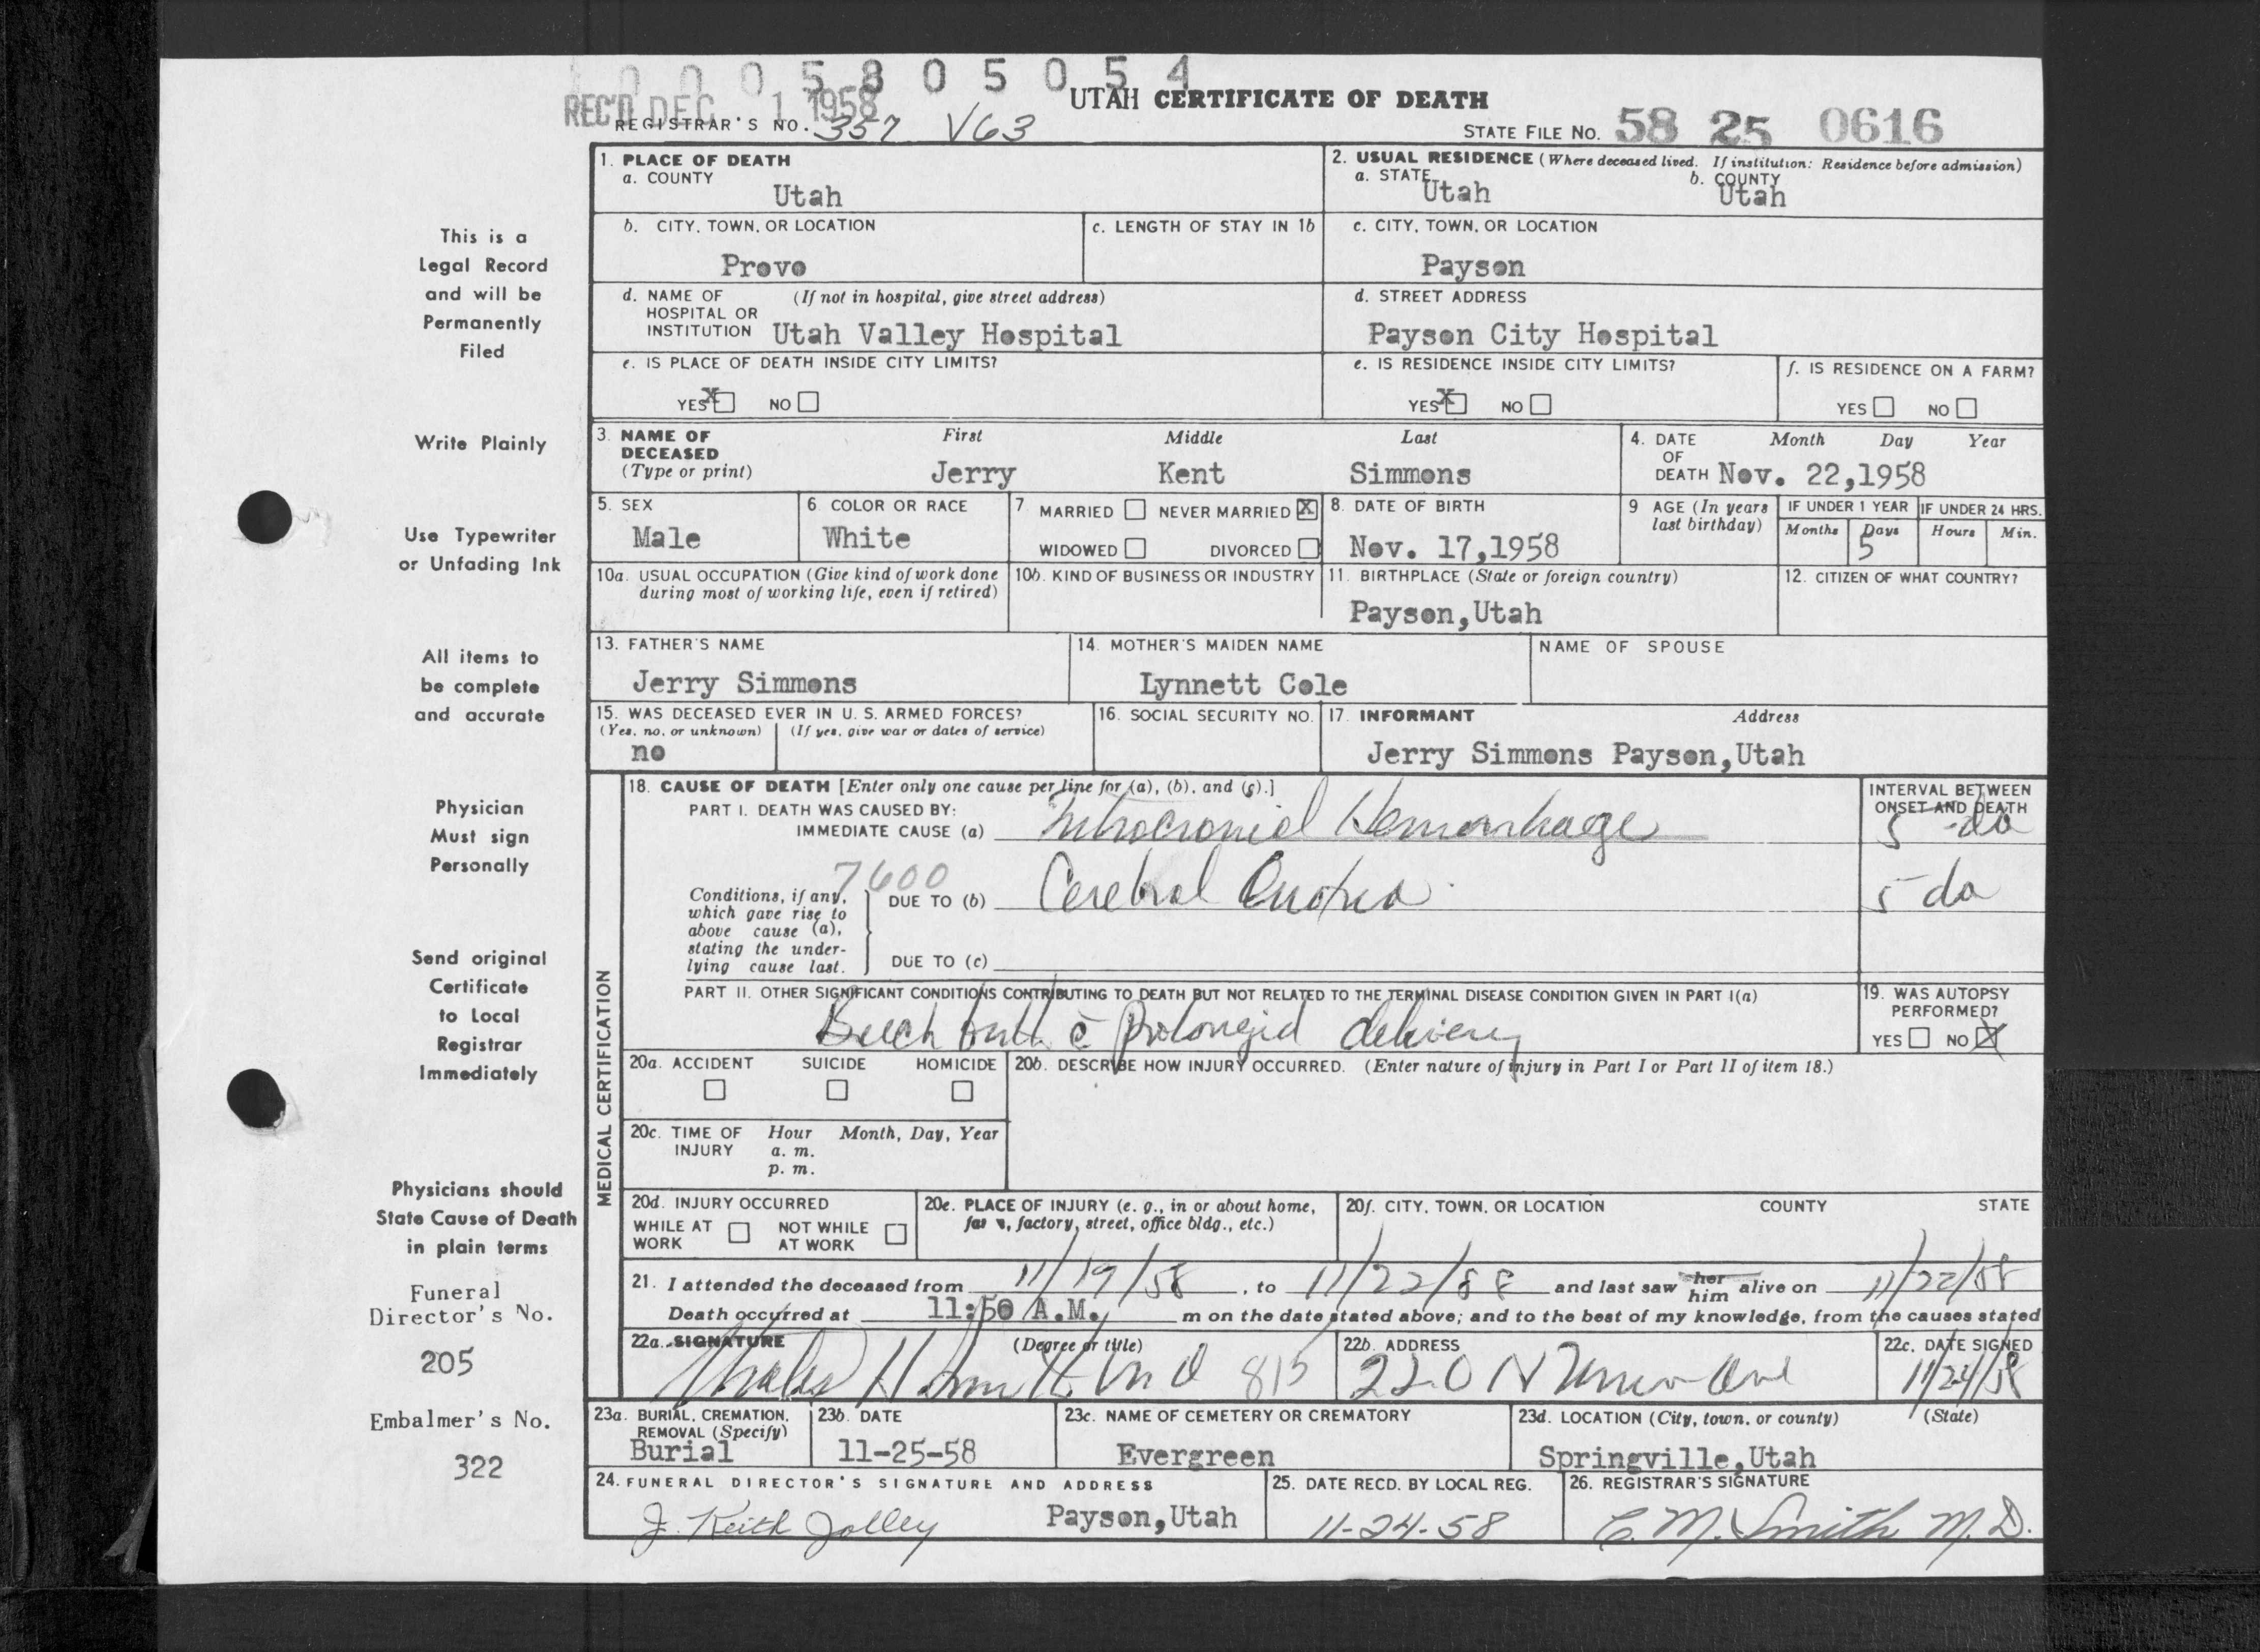 0 0 0 5 8 0 5 0 5 4
REC'D DEC 1 1958
UTAH CERTIFICATE OF DEATH
REGISTRAR'S NO. 357 V63
STATE FILE NO. 58 25 0616
This is a
Legal Record
and will be
Permanently
Filed
Write Plainly
Use Typewriter
or Unfading Ink
All items to
be complete
and accurate
Physician
Must sign
Personally
Send original
Certificate
to Local
Registrar
Immediately
Physicians should
State Cause of Death
in plain terms
Funeral
Director's No.
205
Embalmer's No.
322
1. PLACE OF DEATH
a. COUNTY
Utah
2. USUAL RESIDENCE (Where deceased lived. If institution: Residence before admission)
a. STATE Utah b. COUNTY Utah
b. CITY, TOWN, OR LOCATION
Provo
c. LENGTH OF STAY IN 1b
c. CITY, TOWN, OR LOCATION
Payson
d. NAME OF (If not in hospital, give street address)
HOSPITAL OR
INSTITUTION Utah Valley Hospital
d. STREET ADDRESS
Payson City Hospital
e. IS PLACE OF DEATH INSIDE CITY LIMITS?
YES X NO
e. IS RESIDENCE INSIDE CITY LIMITS?
YES X NO
f. IS RESIDENCE ON A FARM?
YES NO
3. NAME OF DECEASED
(Type or print)
First Middle Last
Jerry Kent Simmons
4. DATE OF DEATH Month Day Year
Nov. 22,1958
5. SEX
Male
6. COLOR OR RACE
White
7 MARRIED NEVER MARRIED X
WIDOWED DIVORCED
8. DATE OF BIRTH
Nov. 17,1958
9 AGE (In years
last birthday)
IF UNDER 1 YEAR IF UNDER 24 HRS.
Months Days Hours Min.
5
10a. USUAL OCCUPATION (Give kind of work done
during most of working life, even if retired)
10b. KIND OF BUSINESS OR INDUSTRY
11. BIRTHPLACE (State or foreign country)
Payson,Utah
12. CITIZEN OF WHAT COUNTRY?
13. FATHER'S NAME
Jerry Simmons
14. MOTHER'S MAIDEN NAME
Lynnett Cole
NAME OF SPOUSE
15. WAS DECEASED EVER IN U. S. ARMED FORCES?
(Yes, no, or unknown) (If yes, give war or dates of service)
no
16. SOCIAL SECURITY NO.
17. INFORMANT Address
Jerry Simmons Payson,Utah
MEDICAL CERTIFICATION
18. CAUSE OF DEATH [Enter only one cause per line for (a), (b), and (c).]
PART I. DEATH WAS CAUSED BY:
IMMEDIATE CAUSE (a) Intracranial Hemorrhage
INTERVAL BETWEEN
ONSET AND DEATH
5 da
7600
Conditions, if any,
which gave rise to
above cause (a),
stating the under-
lying cause last.
DUE TO (b) Cerebral Anoxia
5 da
DUE TO (c)
PART II. OTHER SIGNIFICANT CONDITIONS CONTRIBUTING TO DEATH BUT NOT RELATED TO THE TERMINAL DISEASE CONDITION GIVEN IN PART I(a)
Breech birth c̄ prolonged delivery
19. WAS AUTOPSY
PERFORMED?
YES NO X
20a. ACCIDENT SUICIDE HOMICIDE
20b. DESCRIBE HOW INJURY OCCURRED. (Enter nature of injury in Part I or Part II of item 18.)
20c. TIME OF INJURY Hour Month, Day, Year
a. m.
p. m.
20d. INJURY OCCURRED
WHILE AT WORK NOT WHILE AT WORK
20e. PLACE OF INJURY (e. g., in or about home,
farm, factory, street, office bldg., etc.)
20f. CITY, TOWN, OR LOCATION COUNTY STATE
21. I attended the deceased from 11/19/58, to 11/22/58 and last saw her him alive on 11/22/58
Death occurred at 11:50 A.M. m on the date stated above; and to the best of my knowledge, from the causes stated
22a. SIGNATURE (Degree or title)
H. Smith MD
22b. ADDRESS
220 N
22c. DATE SIGNED
11/24/58
23a. BURIAL, CREMATION,
REMOVAL (Specify)
Burial
23b. DATE
11-25-58
23c. NAME OF CEMETERY OR CREMATORY
Evergreen
23d. LOCATION (City, town, or county) (State)
Springville,Utah
24. FUNERAL DIRECTOR'S SIGNATURE AND ADDRESS
J. Keith Jolley Payson,Utah
25. DATE RECD. BY LOCAL REG.
11-24-58
26. REGISTRAR'S SIGNATURE
C. M. Smith M.D.